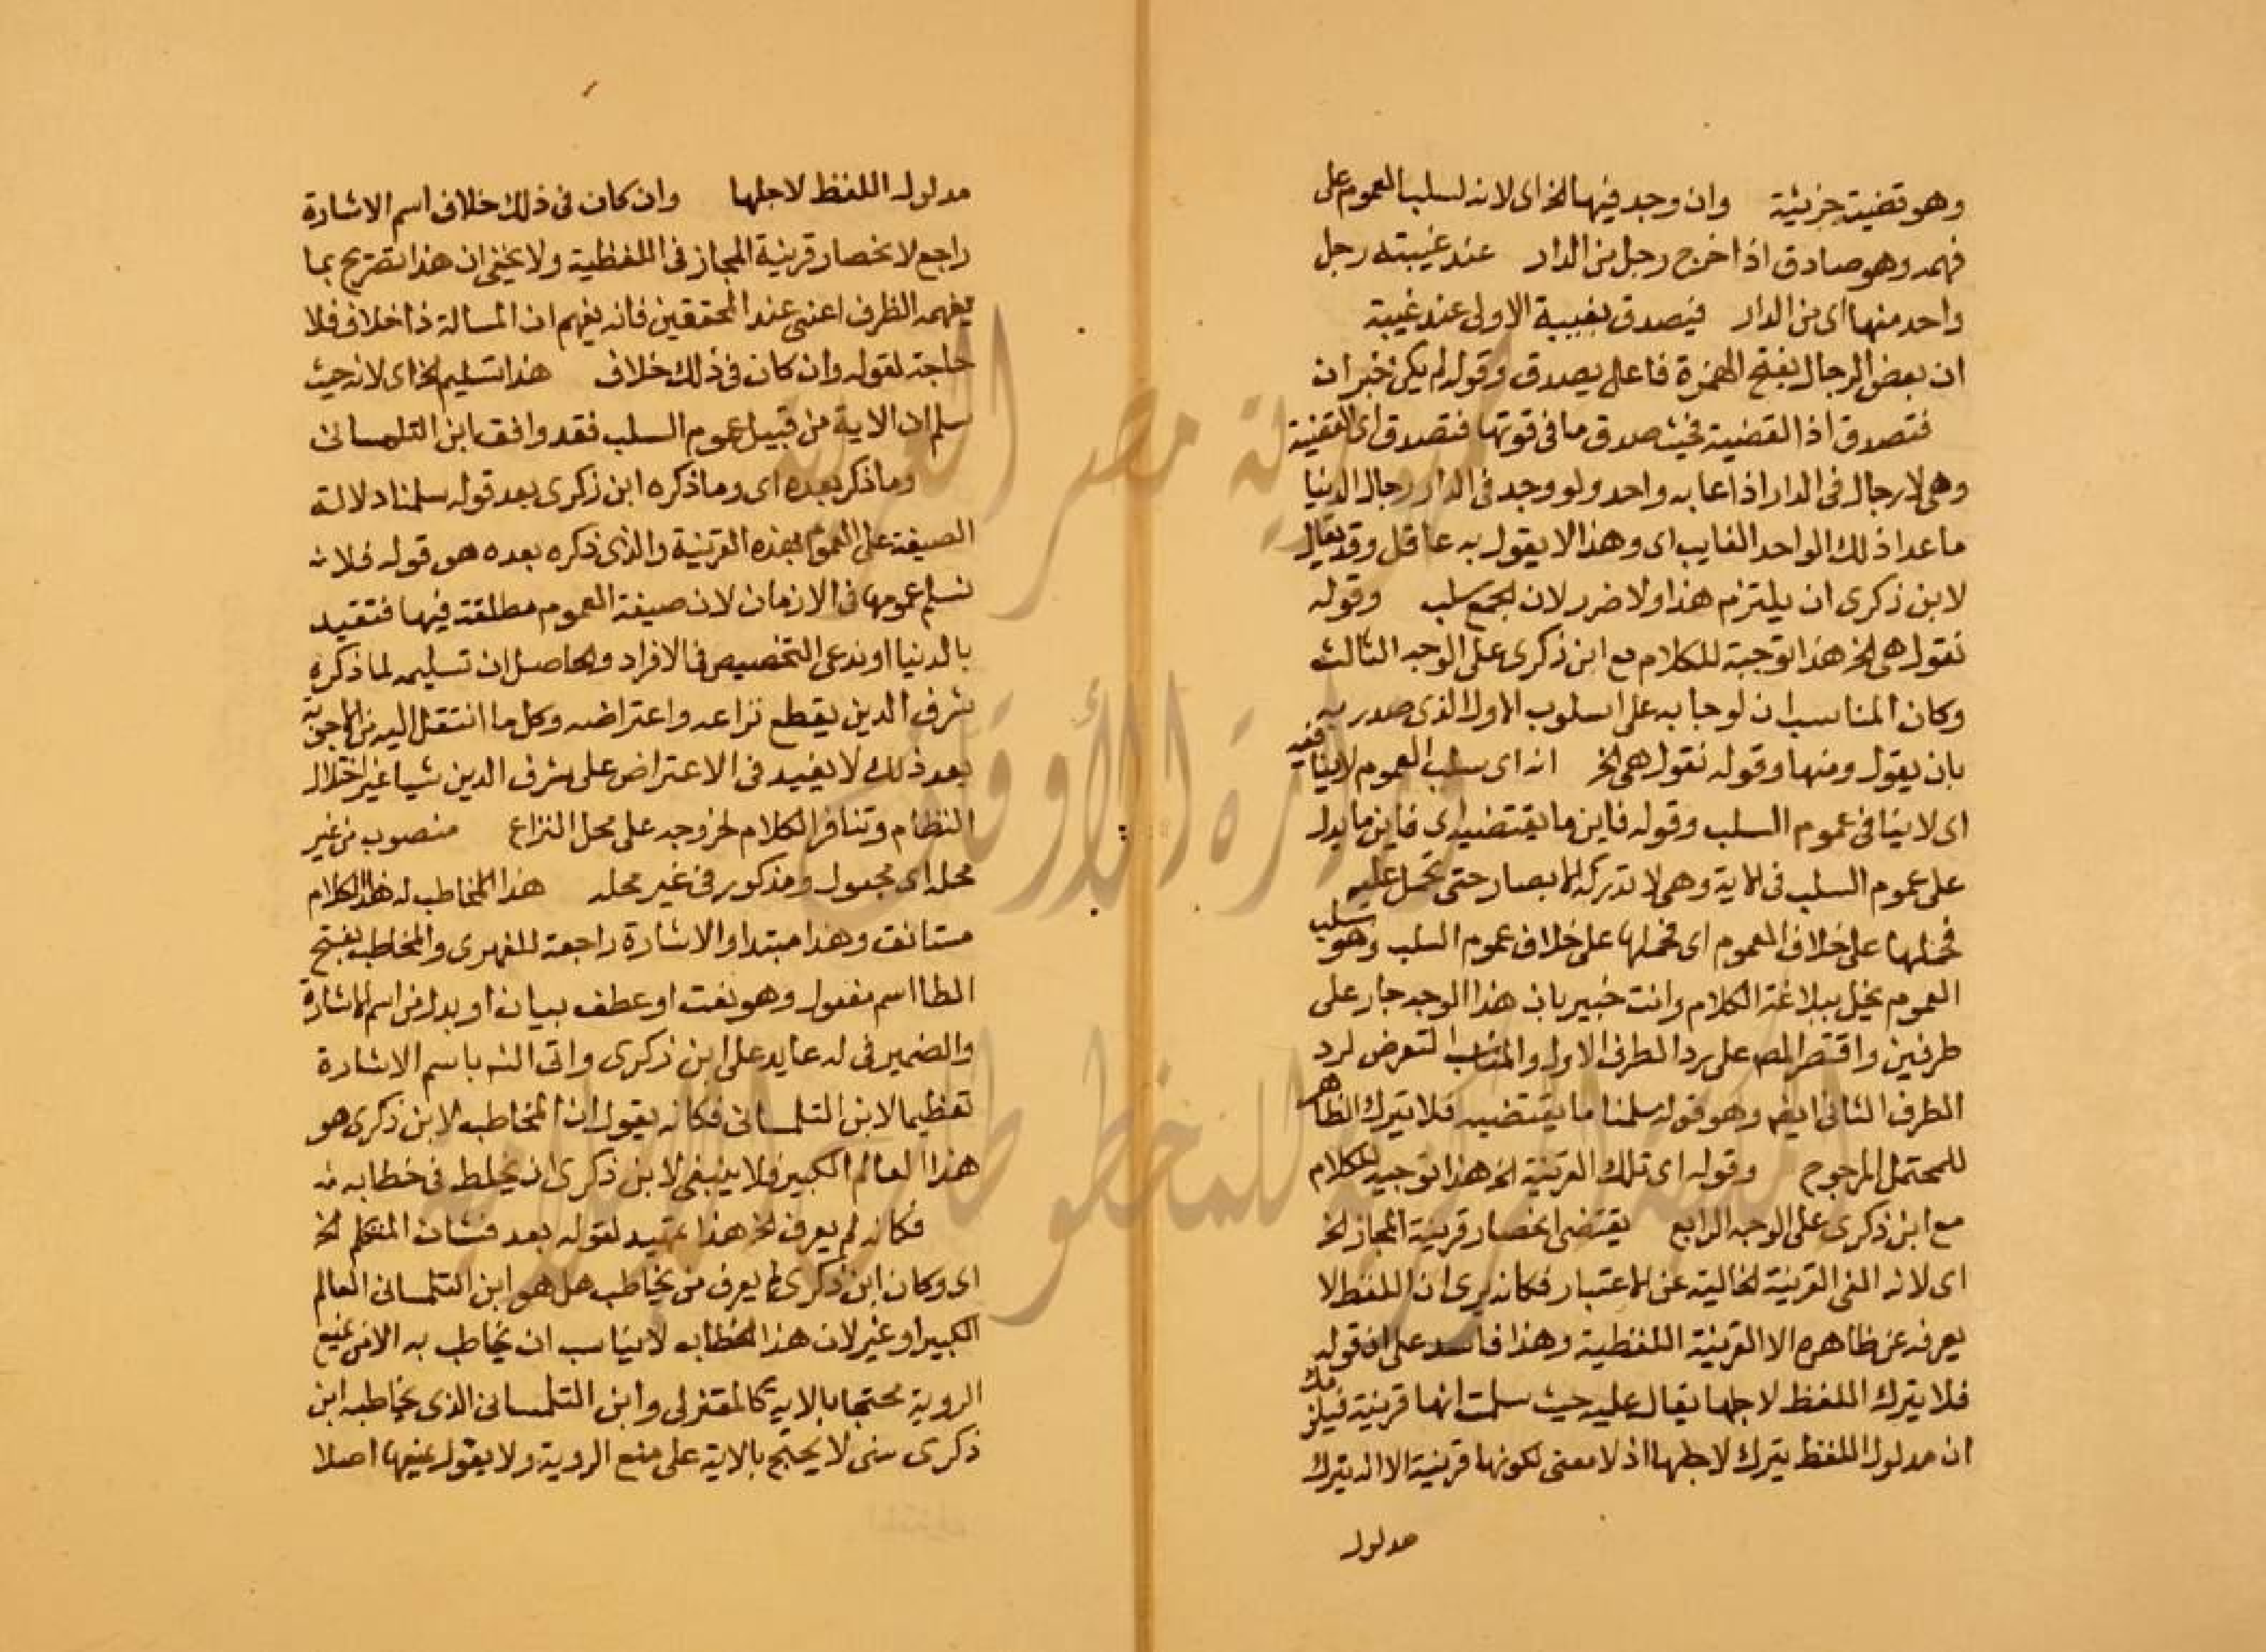 وهو قضية جزئية وان وجد فيها الخ اى لانه لسلب العموم على
فهمه وهو صادق اذا خرج رجل من الدار عند غيبته رجل
واحد منها اى من الدار فيصدق بغيبة الاولى عند غيبة
ان بعض الرجال بفتح الهمزة فاعل يصدق وقوله لم يكن خبر ان
فتصدق اذا القضية فحيث صدق ما فى قوتها فتصدق اى القضية
وهى لا رجال فى الدار اذا غاب واحد ولو وجد فى الدار رجال الدنيا
ما عدا ذلك الواحد الغايب اى وهذا لا يقول به عاقل وقد يقال
لابن ذكرى ان يلتزم هذا ولا ضرر لان لجمع سلب وقوله
نقول هى الخ هذا توجيه للكلام مع ابن ذكرى على الوجه الثالث
وكان المناسب ان لو جا به على اسلوب الاول الذى صدر به
بان يقول ومنها وقوله نقول هى الخ انه اى سلب العموم لاينافيه
اى لاينافى عموم السلب وقوله فاين ما يقتضيه اى فاين ما يدل
على عموم السلب فى الاية وهى لا تدركه الابصار حتى تحمل عليه
فحملها على خلاف العموم اى فحملها على خلاف عموم السلب وهو سلب
العموم يخل ببلاغة الكلام وانت خبير بان هذا الوجه جار على
طرفين واقتصر المص على رد الطرف الاول والمناسب التعرض لرد
الطرف الثانى ايضا وهو قوله سلمنا ما يقتضيه فلا يترك الظاهر
للمحتمل المرجوح وقوله اى تلك القرينة الخ هذا توجيه للكلام
مع ابن ذكرى على الوجه الرابع يقتضى انحصار قرينة المجاز الخ
اى لانه الغى القرينة الحالية عن الاعتبار فكانه يرى ان اللفظ لا
يصرفه عن ظاهره الا القرينة اللفظية وهذا فاسد على ان قوله
فلا يترك اللفظ لاجلها يقال عليه حيث سلمت انها قرينة فيلزمك
ان مدلول اللفظ يترك لاجلها اذ لا معنى لكونها قرينة الا انه يترك
مدلول
مدلول اللفظ لاجلها وان كان فى ذلك خلاف اسم الاشارة
راجع لانحصار قرينة المجاز فى اللفظية ولا يخفى ان هذا تصريح بما
يفهمه الظرف اعنى عند المحققين فانه يفهم ان المسالة ذا خلاف فلا
حاجة لقوله وان كان فى ذلك خلاف هذا تسليم الخ اى لانه حيث
سلم ان الاية من قبيل عموم السلب فقد وافق ابن التلمسانى
وما ذكر بعده اى وما ذكره ابن ذكرى بعد قوله سلمنا دلالة
الصيغة على العموم بهذه القرينة والذى ذكره بعده هو قوله فلا نه
نسلم عمومها فى الازمان لان صيغة العموم مطلقة فيها فتقيد
بالدنيا او ندعى التخصيص فى الافراد والحاصل ان تسليمه لما ذكره
شرف الدين يقطع نزاعه واعتراضه وكل ما انتقل اليه من الاجوبة
بعد ذلك لا يفيد فى الاعتراض على شرف الدين شيا غير اختلال
النظام وتنافر الكلام لخروجه على محل النزاع منصوب من غير
محله اى مجعول ومذكور فى غير محله هذا المخاطب له هذا الكلام
مستانف وهذا مبتدا والاشارة راجعة للفهرى والمخاطب بفتح
الطا اسم مفعول وهو نعت او عطف بيان او بدل من اسم الاشارة
والضمير فى له عايد على ابن ذكرى واتى الش باسم الاشارة
تعظيما لابن التلمسانى فكانه يقول ان المخاطب لابن ذكرى هو
هذا العالم الكبير فلا ينبغى لابن ذكرى ان يخلط فى خطابه منه
فكانه لم يعرف الخ هذا تمهيد لقوله بعد فشان المتكلم الخ
اى وكان ابن ذكرى لم يعرف من يخاطب هل هو ابن التلمسانى العالم
الكبير او غير لان هذا الخطاب لا يناسب ان يخاطب به الا من يمنع
الروية محتجا بالاية كالمعتزلى وابن التلمسانى الذى يخاطبه ابن
ذكرى سنى لا يحتج بالاية على منع الروية ولا يقول بنفيها اصلا